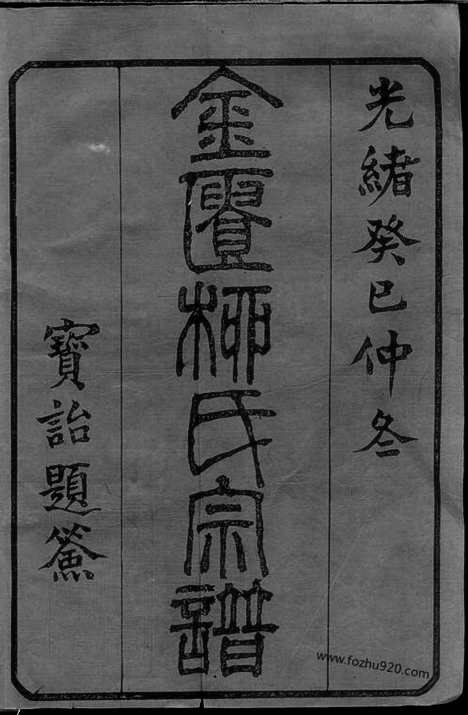 光緒癸巳仲冬
金匱柳氏宗譜
寶詒題簽
www.fozhu920.com